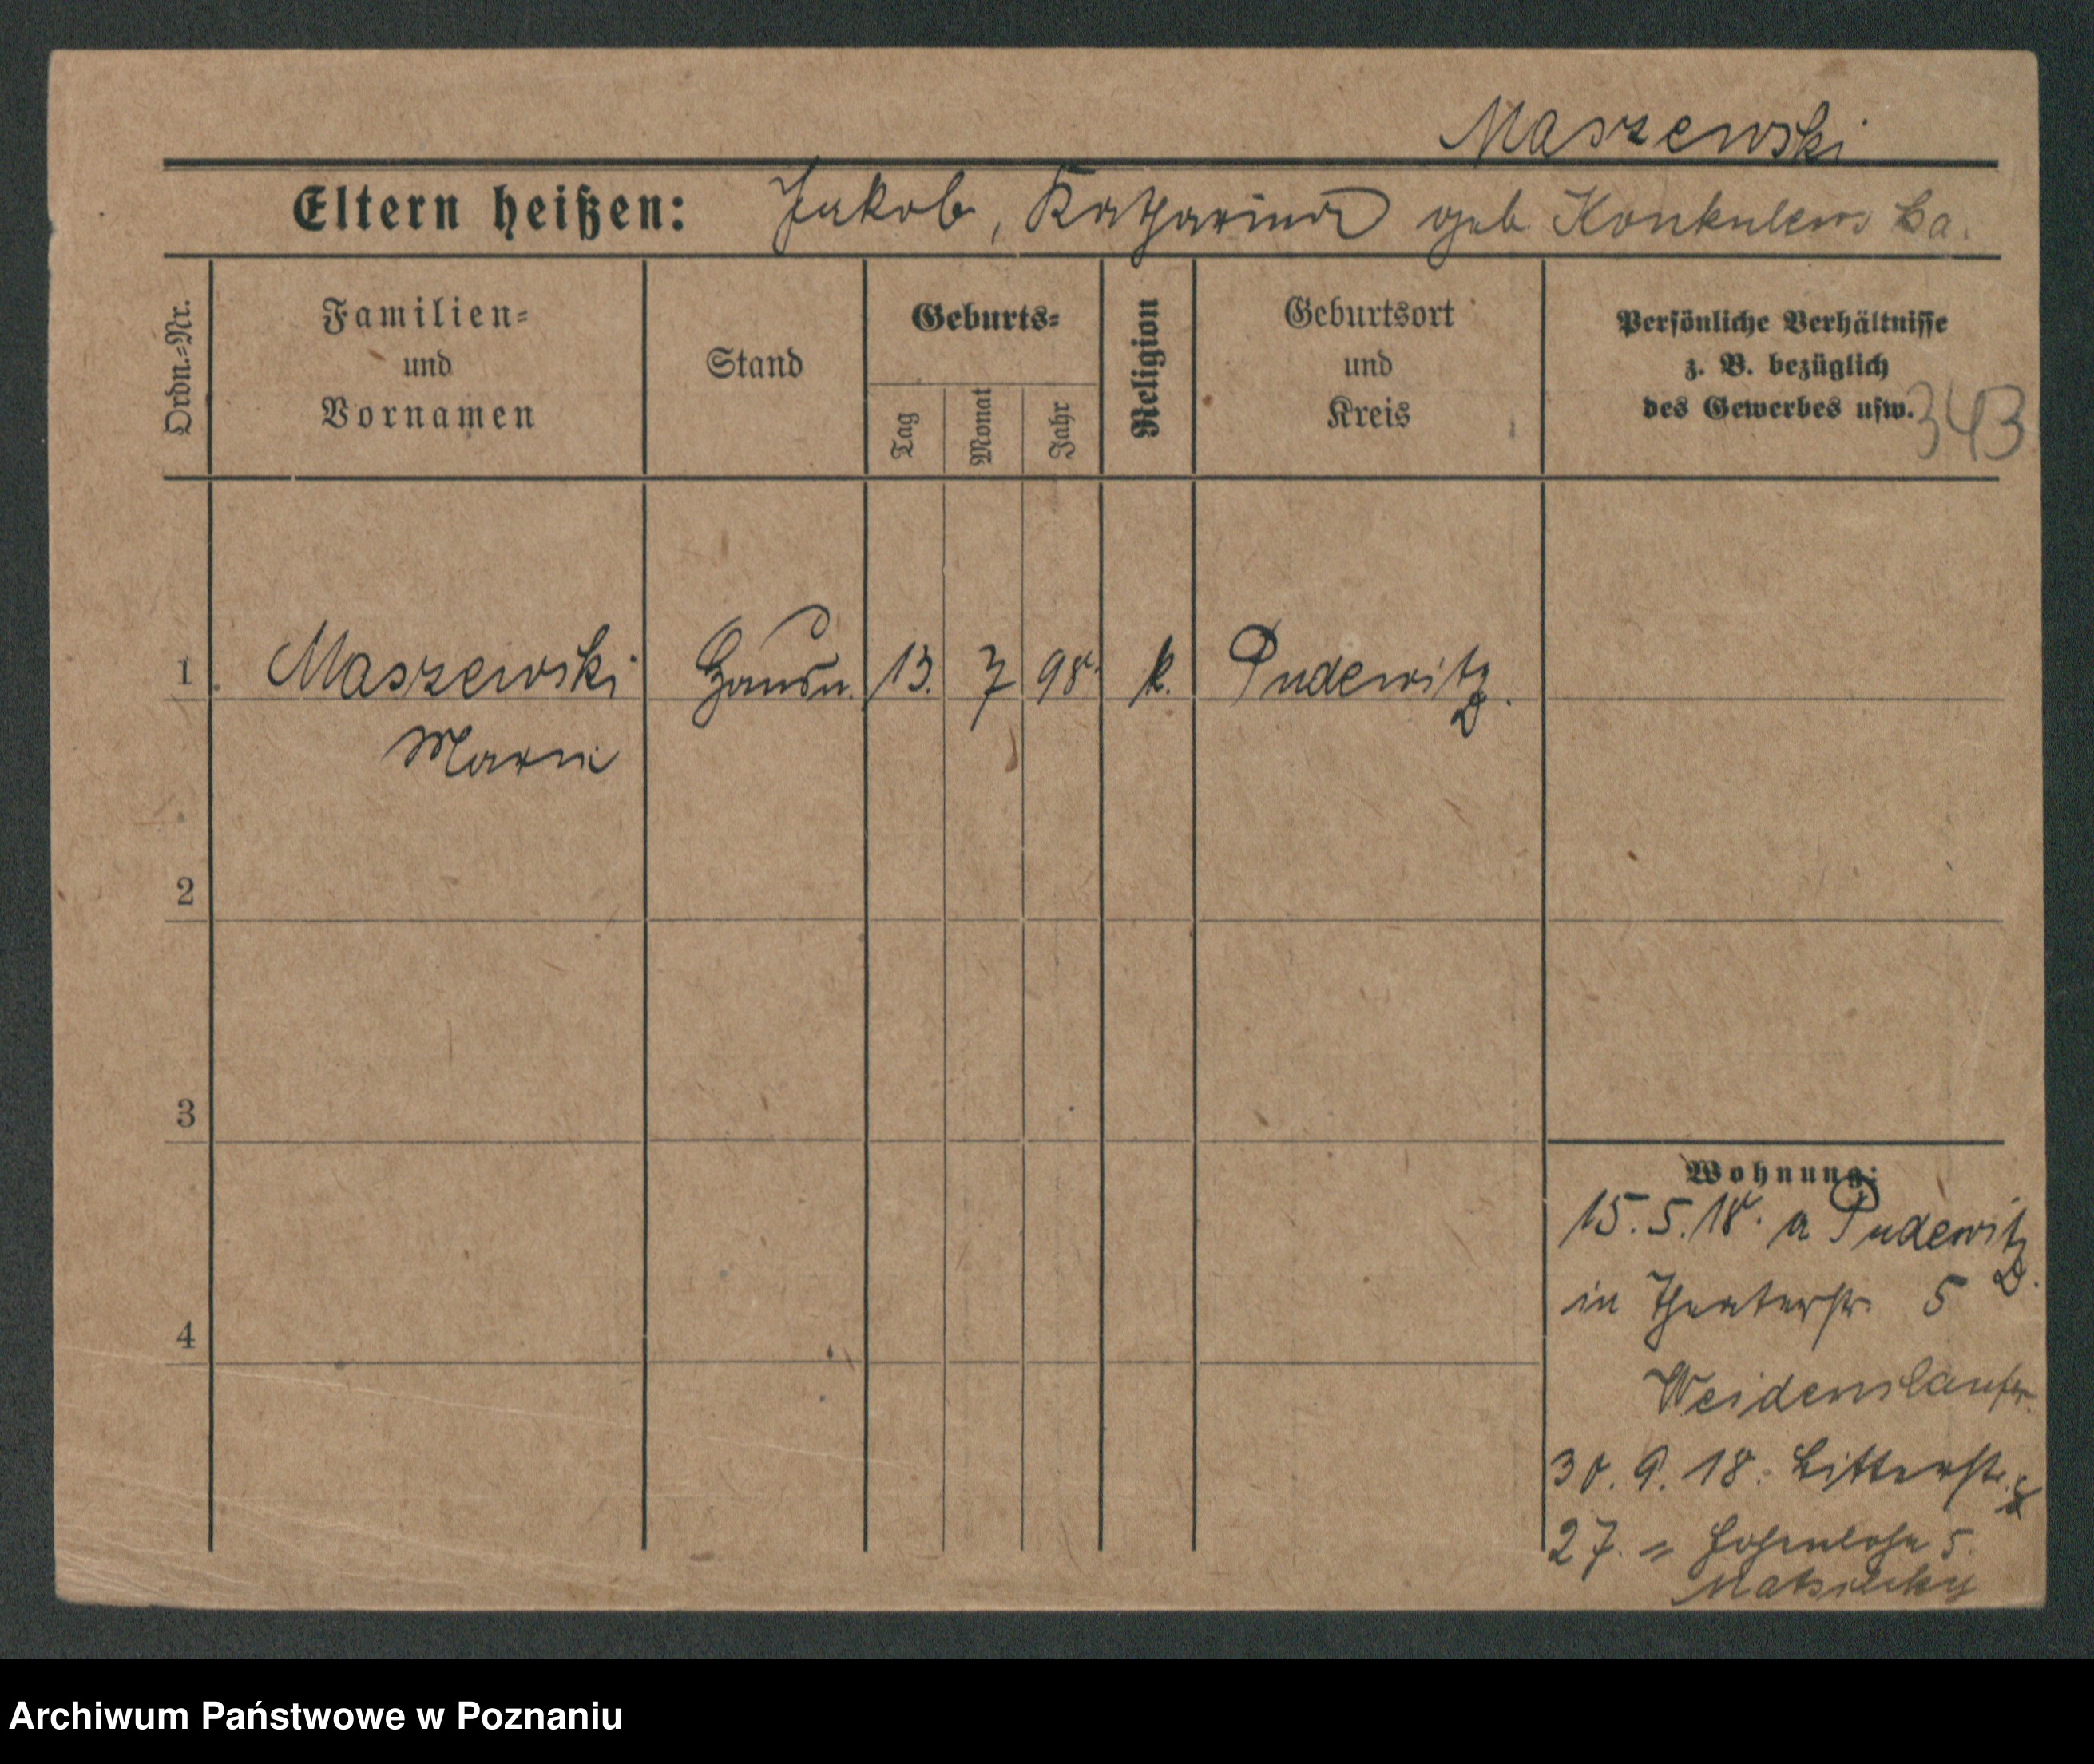 Maszewski
Eltern heißen: Jakob, Katharina geb Konkulewska.
Ordn.=Nr.
Familien=
und
Vornamen
Stand
Geburts=
Tag
Monat
Jahr
Religion
Geburtsort
und
Kreis
Persönliche Verhältnisse
z. B. bezüglich
des Gewerbes usw.
343
1 Maszewski 13. 7 98. k. Pudewitz.
Marie
2
3
4
Wohnung:
15.5.18. a Pudewitz
in Theaterstr. 5
30.9.18. Ritterstr.
27. = Hohenlohe 5.
Archiwum Państwowe w Poznaniu